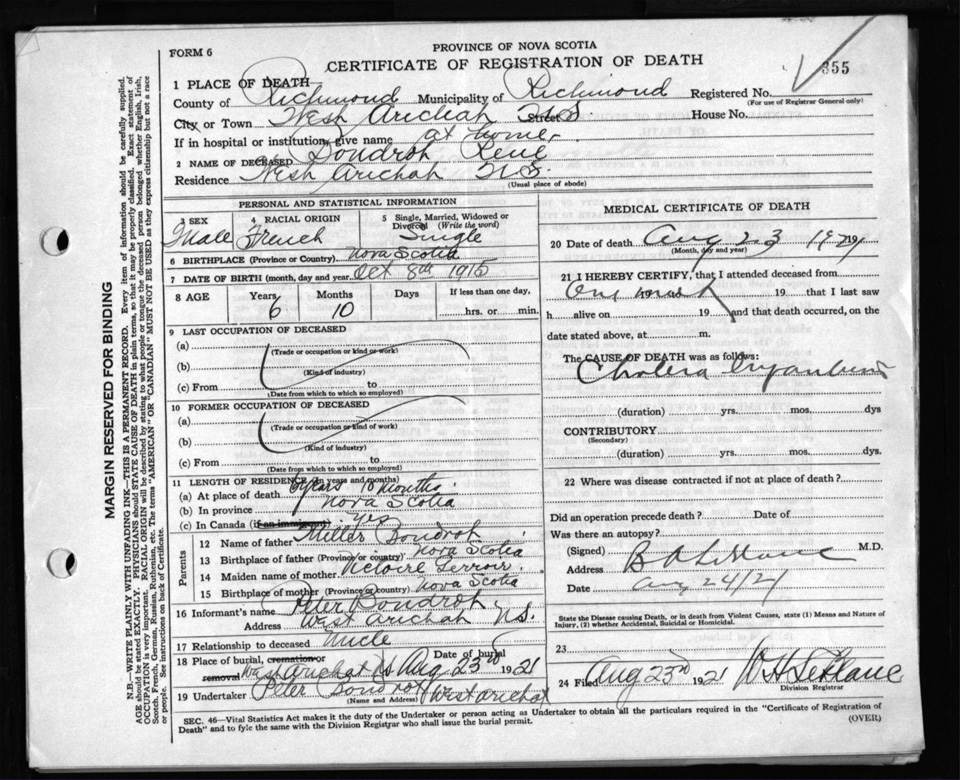 FORM 6
PROVINCE OF NOVA SCOTIA
CERTIFICATE OF REGISTRATION OF DEATH
355
1 PLACE OF DEATH
County of Richmond Municipality of Richmond Registered No.
(For use of Registrar General only)
City or Town West Arichat Street N.S. House No.
If in hospital or institution, give name at home
2 NAME OF DECEASED Bondrot René
Residence West Arichat N.S.
(Usual place of abode)
PERSONAL AND STATISTICAL INFORMATION
3 SEX Male
4 RACIAL ORIGIN French
5 Single, Married, Widowed or Divorced (Write the word) Single
6 BIRTHPLACE (Province or Country) Nova Scotia
7 DATE OF BIRTH (month, day and year) Oct 8th 1915
8 AGE Years 6 Months 10 Days If less than one day, hrs. or min.
9 LAST OCCUPATION OF DECEASED
(a)
(Trade or occupation or kind or work)
(b)
(Kind of industry)
(c) From to
(Date from which to which so employed)
10 FORMER OCCUPATION OF DECEASED
(a)
(Trade or occupation or kind of work)
(b)
(Kind of industry)
(c) From to
(Date from which to which so employed)
11 LENGTH OF RESIDENCE (in years and months)
(a) At place of death 6 years 10 months
(b) In province Nova Scotia
(c) In Canada (if an immigrant) yes
Parents
12 Name of father Miller Bondrot
13 Birthplace of father (Province or country) Nova Scotia
14 Maiden name of mother Victoire
15 Birthplace of mother (Province or country) Nova Scotia
16 Informant's name Peter Bondrot
Address West Arichat N.S.
17 Relationship to deceased Uncle
18 Place of burial, cremation or removal West Arichat NS Date of burial Aug 23rd 1921
19 Undertaker Peter Bondrot West Arichat
(Name and Address)
MEDICAL CERTIFICATE OF DEATH
20 Date of death Aug 23 1921
(Month, day and year)
21 I HEREBY CERTIFY, that I attended deceased from
One 19 that I last saw
h alive on 19 and that death occurred, on
date stated above, at m.
The CAUSE OF DEATH was as follows:
Cholera
(duration) yrs. mos. dys
CONTRIBUTORY
(Secondary)
(duration) yrs. mos. dys.
22 Where was disease contracted if not at place of death?
Did an operation precede death? Date of
Was there an autopsy?
(Signed) M.D.
Address
Date Aug 24/21
State the Disease causing Death, or in death from Violent Causes, state (1) Means and Nature of
Injury, (2) whether Accidental, Suicidal or Homicidal.
23
24 Filed Aug 23rd 1921 W H LeBlanc
Division Registrar
SEC. 46—Vital Statistics Act makes it the duty of the Undertaker or person acting as Undertaker to obtain all the particulars required in the "Certificate of Registration of
Death" and to fyle the same with the Division Registrar who shall issue the burial permit.
(OVER)
MARGIN RESERVED FOR BINDING
N.B.—WRITE PLAINLY WITH UNFADING INK—THIS IS A PERMANENT RECORD. Every item of information should be carefully supplied.
AGE should be stated EXACTLY. PHYSICIANS should STATE CAUSE OF DEATH in plain terms, so that it may be properly classified. Exact statement of
OCCUPATION is very important. RACIAL ORIGIN will be described by stating to what people or tongue the deceased person belonged whether English, Irish,
Scotch, French, German, Russian, Ruthenian, etc. The terms "AMERICAN" OR "CANADIAN" MUST NOT BE USED as they express citizenship but not a race
or people. See instructions on back of Certificate.